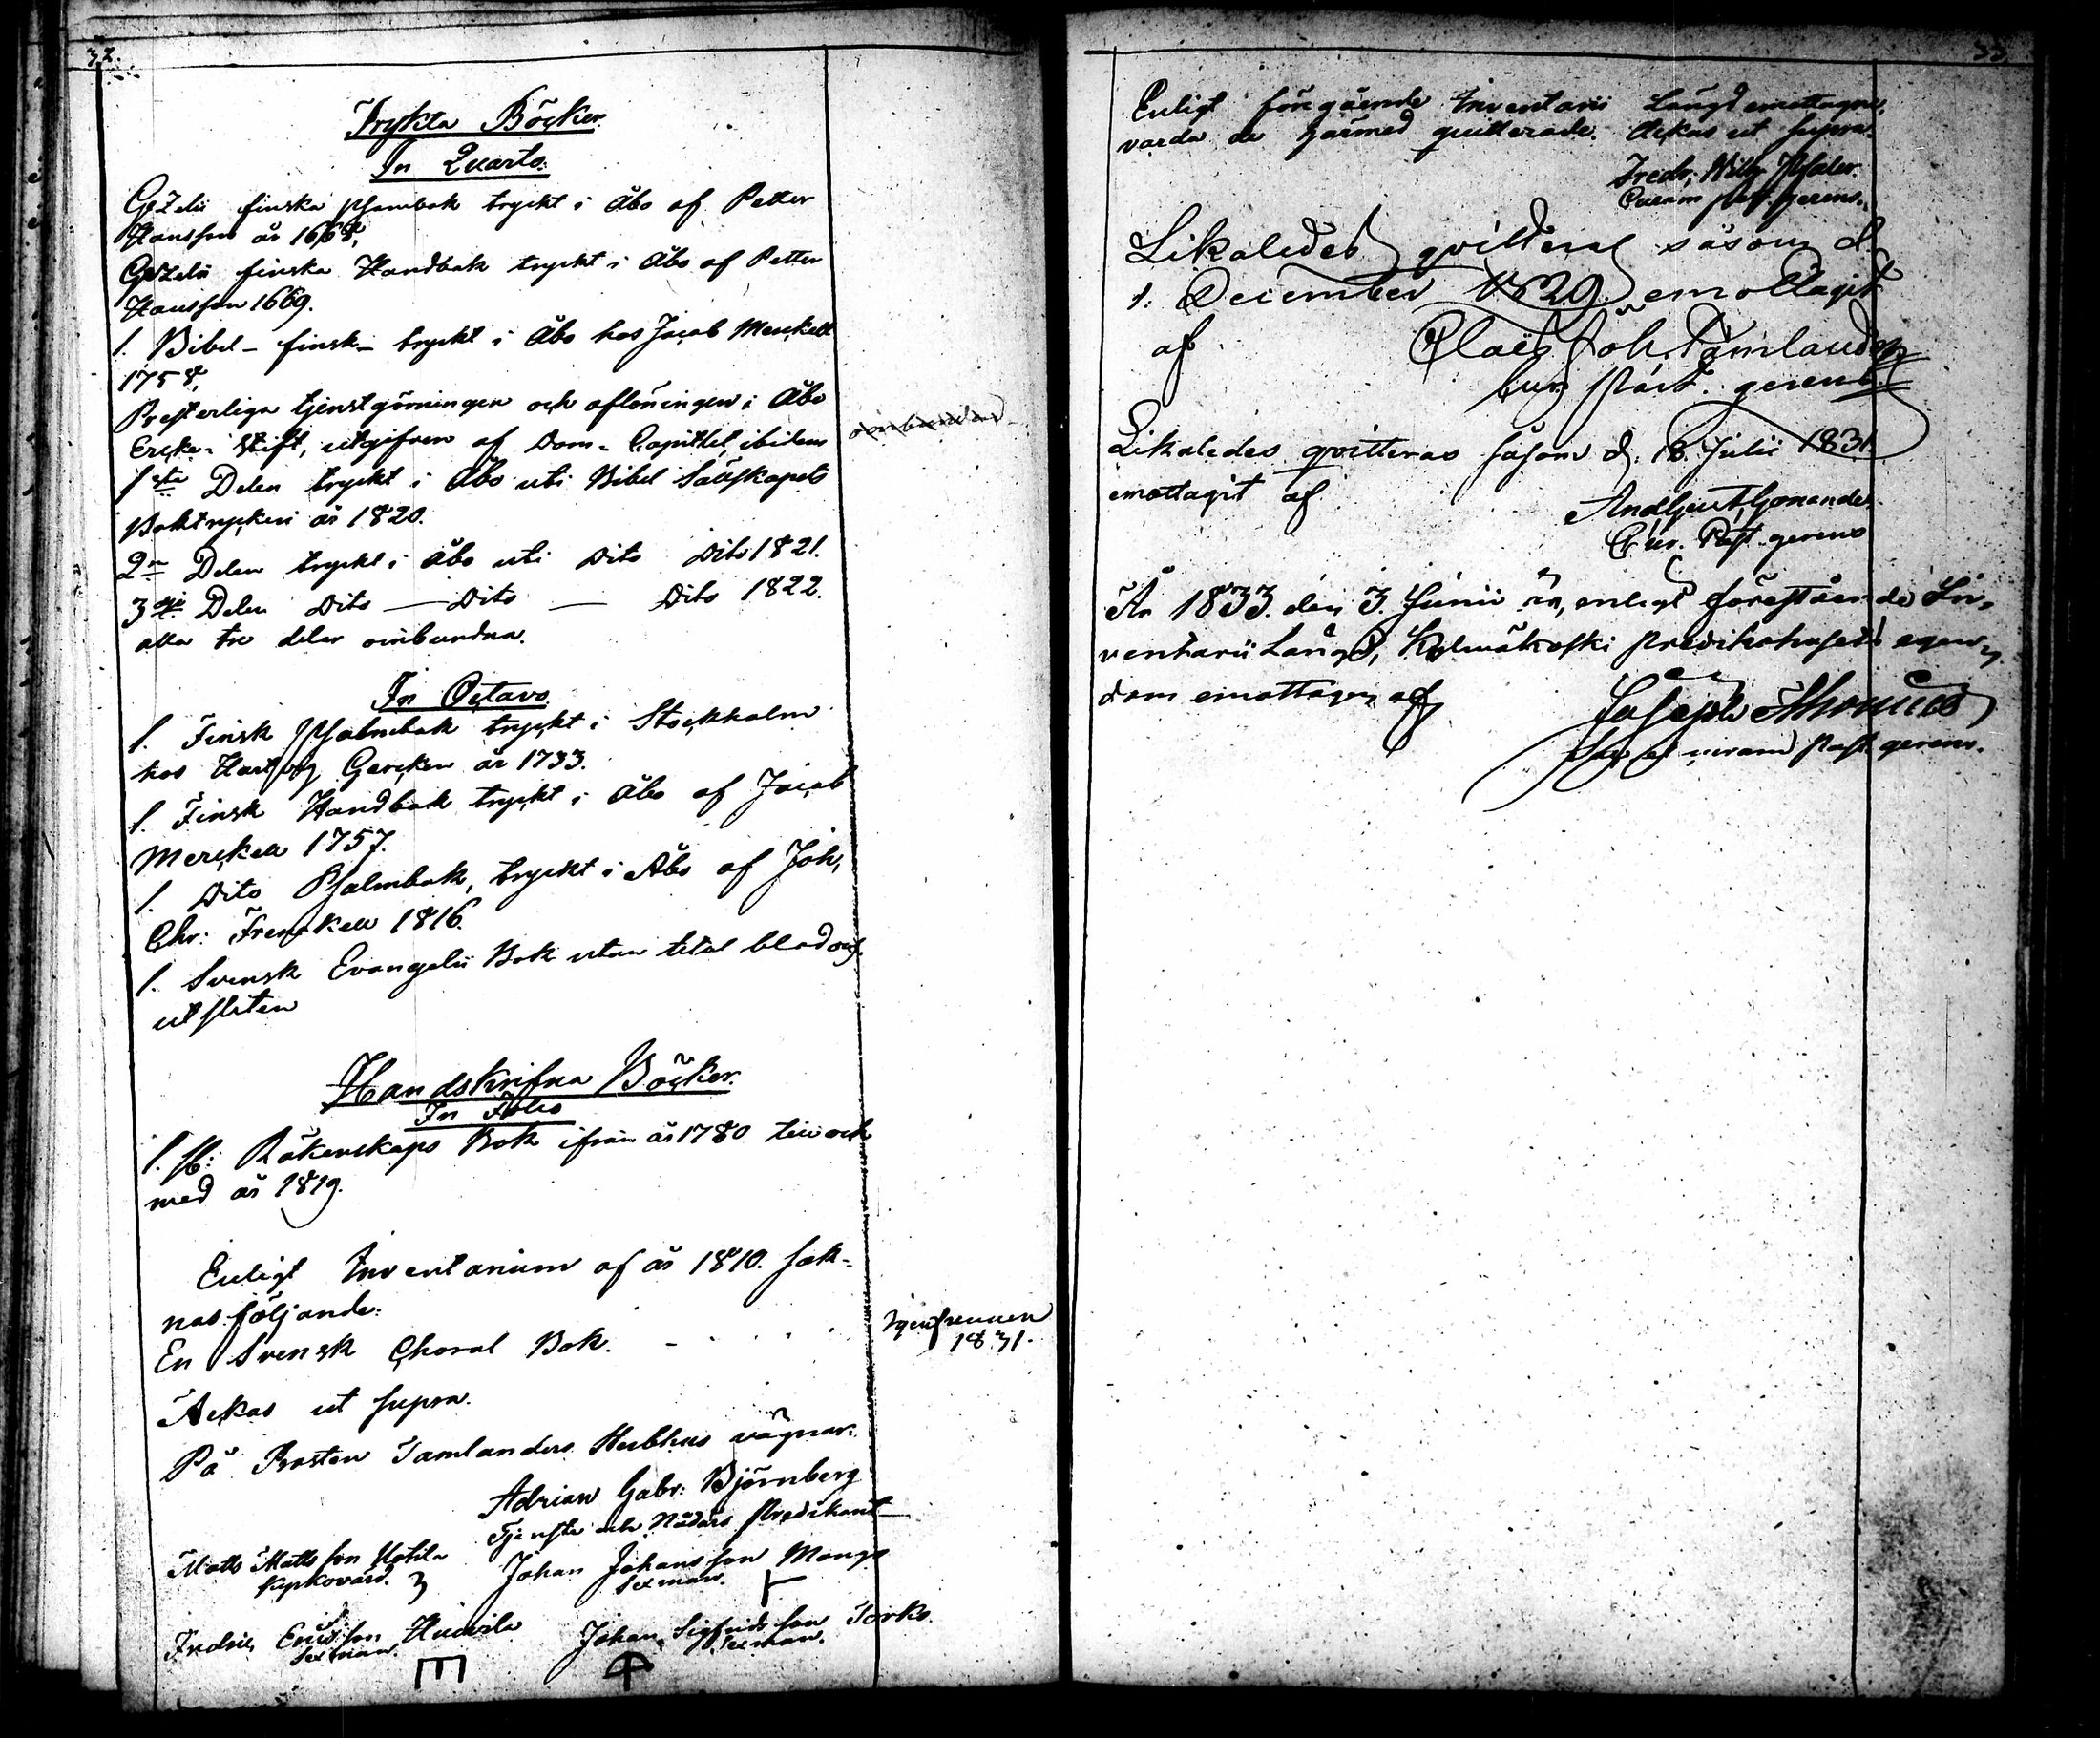 32.
Trykta Böcker.
In Quarto.
Gezelii finska Psalmbok tryckt i Åbo af Petter
Hansson år 1668,
Gezelii finska Handbok tryckt i Åbo af Petter
Hansson 1669.
1. Bibel - finsk - tryckt i Åbo hos Jacob Merckell
1758,
Presterliga tjenstgörningen och aflöningen i Åbo
Ercke-Stift, utgifven af Dom-Capitlet, ibidem
1sta Delen tryckt i Åbo uti Bibel Sällskapets
Boktryckeri år 1820.
2n Delen tryckt i Åbo uti Dito Dito 1821.
3dje Delen Dito — Dito — Dito 1822.
alla tre delar oinbundna.
oinbundna
In Octavo.
1. Finsk Psalmbok tryckt i Stockholm
hos Hartvig Gercken år 1733.
1. Finsk Handbok tryckt i Åbo af Jacob
Merckell 1757.
1. Dito Psalmbok, tryckt i Åbo af Joh,
Chr: Frenckell 1816.
1. Svensk Evangelii Bok utan titel blad och
utsliten
Handskrifna Böcker.
In Folio
1. st: Räkenskaps Bok ifrån år 1780 till och
med år 1819.
Enligt Inventarium af år 1810. sak-
nas följande:
En Svensk Choral Bok. -
Igenfunnen
1831.
Åckas ut supra.
På Prosten Tamlanders Sterbhus vägnar.
Adrian Gabr: Björnberg
Tjenste och Nådårs Predikant
Matts Mattsson Hotila
Kyrkovärd.
Johan Johansson Mangs
Sexman.
Fredric Ericsson Huovila
Sexman.
Johan Sigfridsson Torko.
Sexman.
33
Enligt föregående Inventarii Längd emottagne,
varda de härmed quitterade. Åckas ut supra.
Fredr, Wilh,
Curam past. gerens.
Likaledes qvitteras såsom d.
1. December 1829. emottagit
af Claës Joh. Tamlander
cur. past. gerens.
Likaledes qvitteras såsom d. 18 Julii 1831
emottagit af
Cur. Past. gerens
År 1833. den 3. Junii är, enligt förestående In-
ventarii Längd, Kylmäkoski Predikohusets egen-
dom emottagen af
Joseph
Sac. et curam past. gerens.